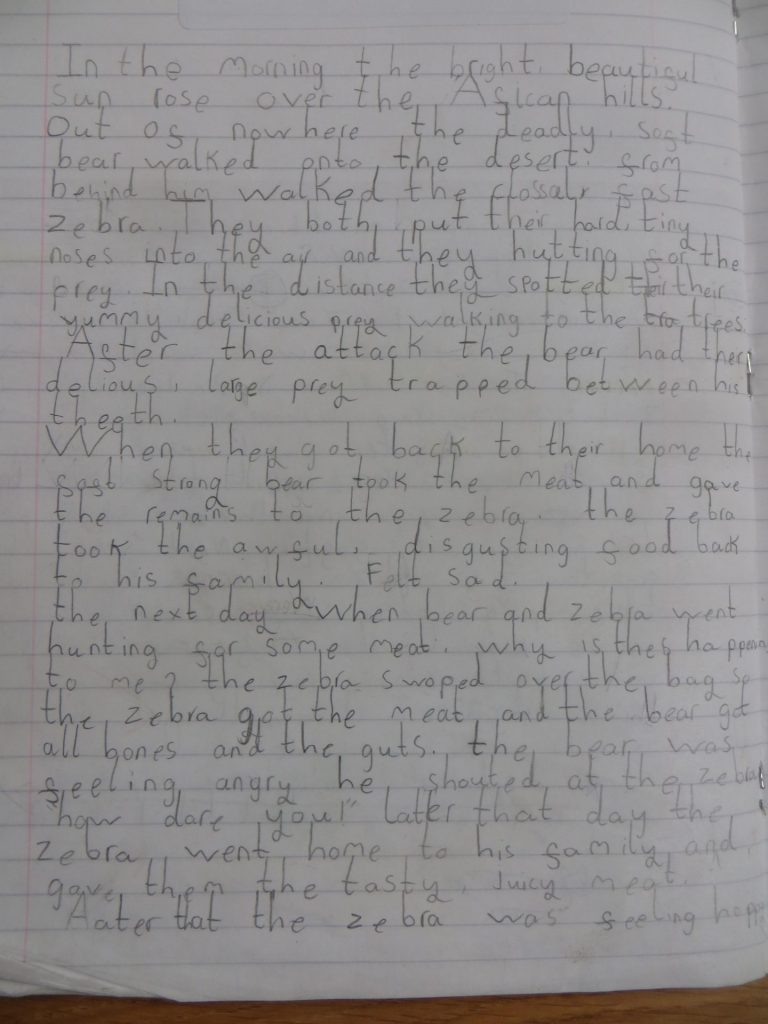 In the morning the bright, beautiful
sun rose over the African hills.
Out of nowhere the deadly, soft
bear walked onto the desert. from
behind him walked the clossalr fast
zebra. They both put their hard, tiny
noses into the air and they hutting for the
prey. In the distance they spotted their their
yummy delicious prey walking to the tra trees.
After the attack the bear had ther
delious, large prey trapped between his
theeth.
When they got back to their home the
fast strong bear took the meat and gave
the remains to the zebra. the zebra
took the awful, disgusting food back
to his family. Felt sad.
the next day when bear and zebra went
hunting for some meat. why is thes happening
to me? the zebra swoped over the bag so
the zebra got the meat and the bear got
all bones and the guts. the bear was
feeling angry he shouted at the zebra
"how dare you!" later that day the
zebra went home to his family and
gave them the tasty, Juicy meat.
Aater that the zebra was feeling happ